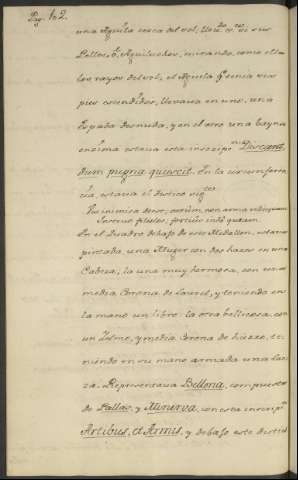 Pag. 102.
una Aguila cerca del sol, llevdo. á sus
Pollos, ó Aguiluchos, mirando, como ella
los rayos del sol, el Aguila qe. tenia sus
pies estendidos, llevava en uno, una
Espada desnuda, y en el otro una bayna
encima estava esta inscripn.
dum pugna quiescit. En la circumferen
cia, estava el distico sigte.
con arma
En el Quadro debaxo de este Medallon, estava
pintada, una Muger con dos hazes en una
Cabeza, la una muy hermosa, con una
media Corona de Laurel, y teniendo en
la mano un libro: la otra bellicosa, con
un Yelmo, y media Corona de hierro, te-
niendo en su mano armada una lan-
za. Representava Bellona, compuesto
de Pallas, y Minerva, con esta inscripn.
Artibus, et Armis, y debaxo este distico